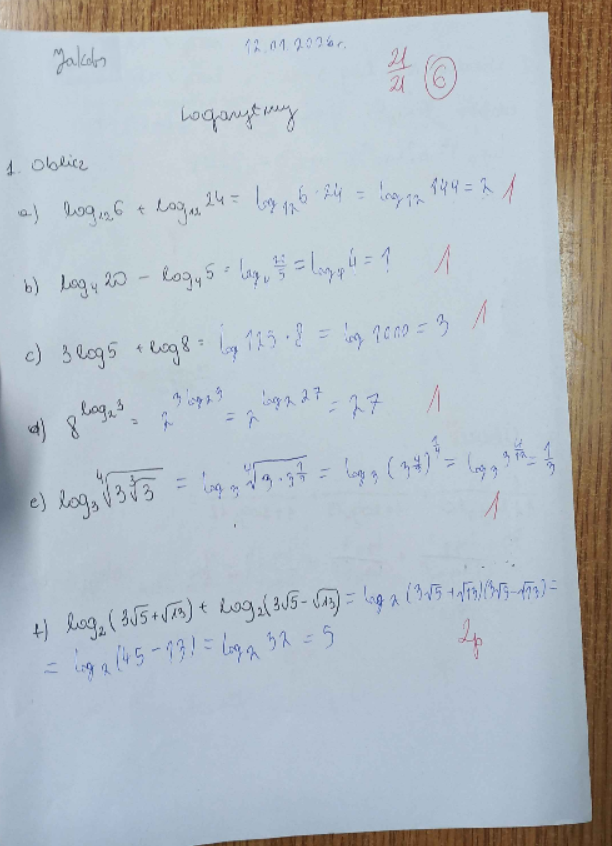 Jakub
12.01.2026r.
21/21 6
Logarytmy
1. Oblicz
a) log₁₂6 + log₁₂24 = log₁₂6·24 = log₁₂144 = 2 1
b) log₄20 − log₄5 = log₄20/5 = log₄4 = 1 1
c) 3log5 + log8 = log125·8 = log1000 = 3 1
d) 8^(log₂3) = 2^(3log₂3) = 2^(log₂27) = 27 1
e) log₃⁴√(3∛3) = log₃⁴√(3·3^(1/3)) = log₃(3^(4/3))^(1/4) = log₃3^(4/12) = 1/3
1
f) log₂(3√5+√13) + log₂(3√5−√13) = log₂(3√5+√13)(3√5−√13) =
= log₂(45−13) = log₂32 = 5 2p